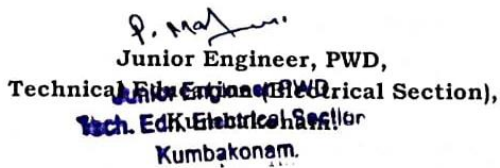 Junior Engineer, PWD,
Technical Education (Electrical Section),
Kumbakonam.
Junior Engineer PWD
Tech. Edn. Electrical Section
Kumbakonam.